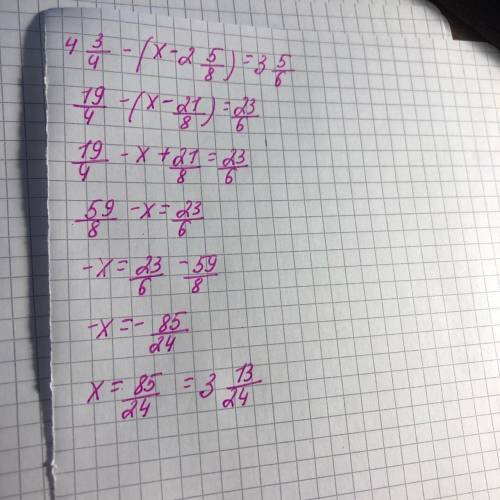 4 3/4 - (x - 2 5/8) = 3 5/6
19/4 - (x - 21/8) = 23/6
19/4 - x + 21/8 = 23/6
59/8 - x = 23/6
-x = 23/6 - 59/8
-x = - 85/24
x = 85/24 = 3 13/24